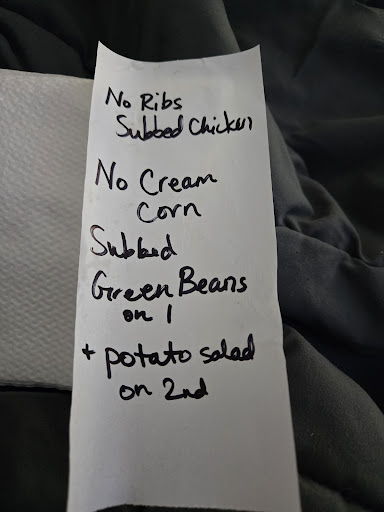 No Ribs
Subbed Chicken
No Cream
Corn
Subbed
Green Beans
on 1
+ potato salad
on 2nd